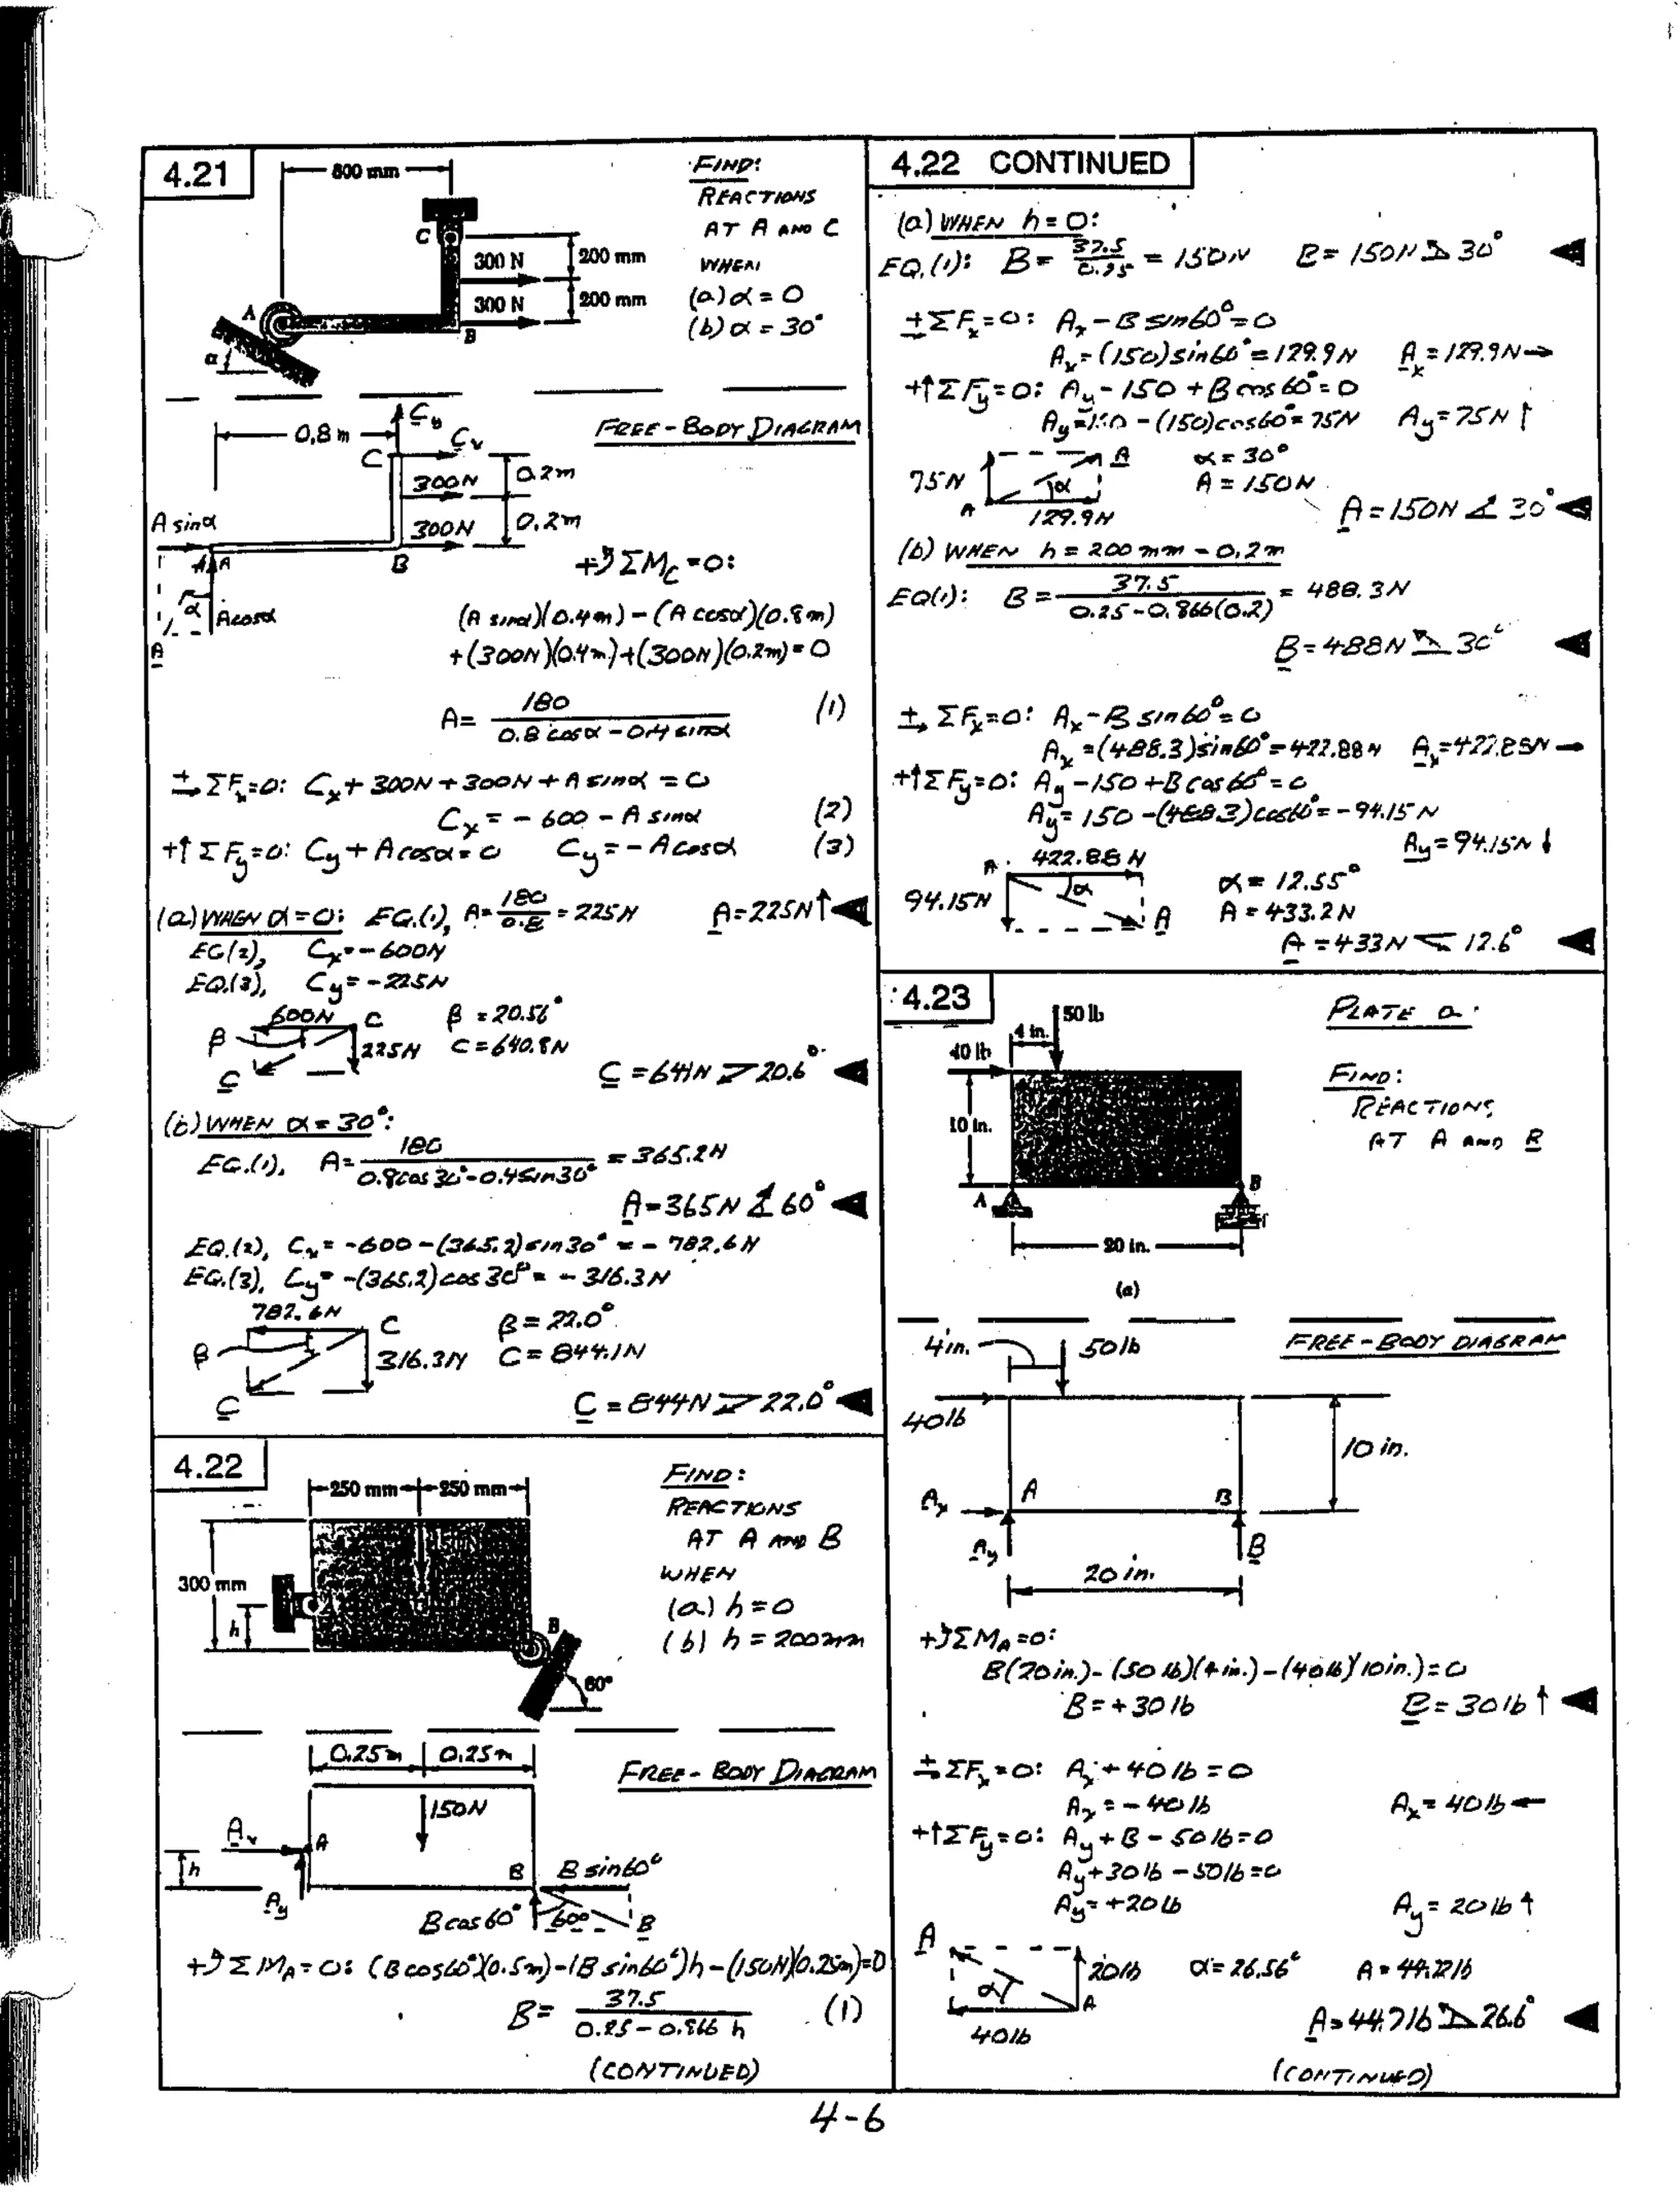 4.21
800 mm
C
300 N
200 mm
300 N
200 mm
A
B
α
FIND:
REACTIONS
AT A AND C
WHEN
(a) α = 0
(b) α = 30°
FREE-BODY DIAGRAM
0.8 m
C
300N
0.2m
300N
0.2m
A sinα
A
B
α
A cosα
A
+↺ΣM_C=0:
(A sinα)(0.4m) − (A cosα)(0.8m)
+(300N)(0.4m)+(300N)(0.2m)=0
A= 180 / (0.8 cosα − 0.4 sinα) (1)
+→ ΣF_x=0: C_x+ 300N + 300N + A sinα = 0
C_x = − 600 − A sinα (2)
+↑ΣF_y=0: C_y + A cosα = 0 C_y = − A cosα (3)
(a) WHEN α=0: EQ.(1), A= 180/0.8 = 225N A=225N↑
EQ(2), C_x=−600N
EQ.(3), C_y= −225N
600N C β = 20.56°
β 225N C=640.8N
C C =641N 20.6°
(b) WHEN α = 30°:
EQ.(1), A= 180 / (0.8cos30°−0.4sin30°) = 365.2N
A=365N 60°
EQ.(2), C_x= −600 −(365.2)sin30° = − 782.6N
EQ.(3), C_y= −(365.2)cos30°= − 316.3N
782.6N C β = 22.0°
β 316.3N C= 844.1N
C C =844N 22.0°
4.22
250 mm 250 mm
300 mm
h
B
60°
FIND:
REACTIONS
AT A AND B
WHEN
(a) h=0
(b) h = 200mm
0.25m 0.25m
FREE-BODY DIAGRAM
150N
A
h
B
B sin60°
A_y
B cos60° 60° B
+↺ΣM_A=0: (B cos60°)(0.5m)−(B sin60°)h−(150N)(0.25m)=0
B= 37.5 / (0.25 − 0.866 h) (1)
(CONTINUED)
4.22 CONTINUED
(a) WHEN h = 0:
EQ.(1): B= 37.5/0.25 = 150N B= 150N 30°
+→ΣF_x=0: A_x − B sin60°=0
A_x=(150)sin60°=129.9N A_x=129.9N→
+↑ΣF_y=0: A_y − 150 + B cos60°=0
A_y=150 −(150)cos60°=75N A_y=75N↑
75N A α = 30°
α A = 150N
A 129.9N A=150N 30°
(b) WHEN h = 200 mm = 0.2m
EQ(1): B = 37.5 / (0.25−0.866(0.2)) = 488.3N
B=488N 30°
+→ΣF_x=0: A_x−B sin60°=0
A_x =(488.3)sin60°=422.88N A_x=422.88N→
+↑ΣF_y=0: A_y −150 +B cos60°=0
A_y= 150 −(488.3)cos60°= −94.15N
A_y=94.15N↓
A 422.88N α = 12.55°
94.15N α A A = 433.2N
A =433N 12.6°
4.23
50 lb
4 in.
40 lb
10 in.
A
B
20 in.
(a)
PLATE a
FIND:
REACTIONS
AT A AND B
FREE-BODY DIAGRAM
4in. 50lb
40lb
10 in.
A_x A B
A_y B
20 in.
+↺ΣM_A=0:
B(20in.)−(50 lb)(4in.)−(40lb)(10in.)=0
B=+30 lb B=30lb↑
+→ΣF_x=0: A_x+40 lb =0
A_x = −40 lb A_x= 40lb←
+↑ΣF_y=0: A_y + B − 50 lb=0
A_y+30 lb −50lb=0
A_y= +20lb A_y = 20lb↑
A 20lb α=26.56° A=44.72lb
α A
40lb A=44.7lb 26.6°
(CONTINUED)
4-6